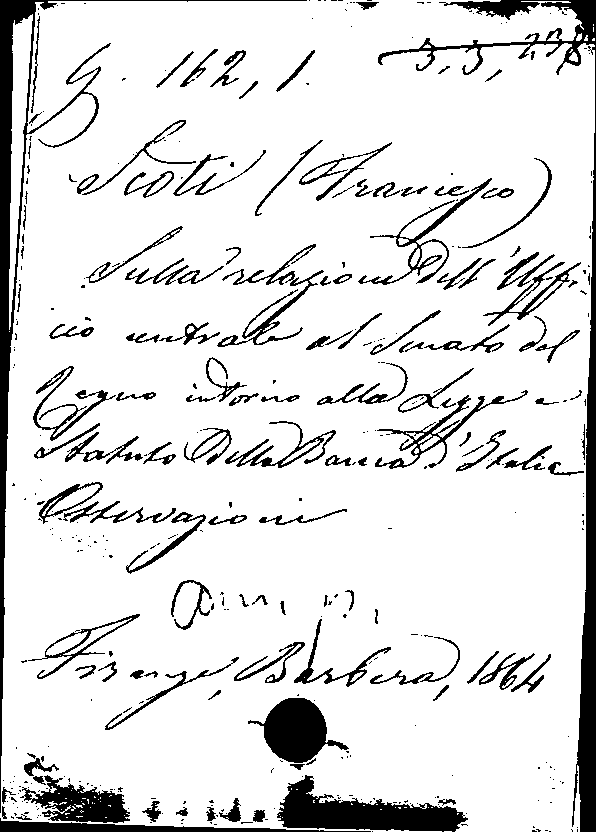 G. 162, 1. 3, 3, 238
Scoti (Francesco)
Sulla relazione dell' Uffi-
cio centrale al Senato del
Regno intorno alla Legge e
Statuto della Banca d'Italia
Osservazioni
Firenze, Barbera, 1864